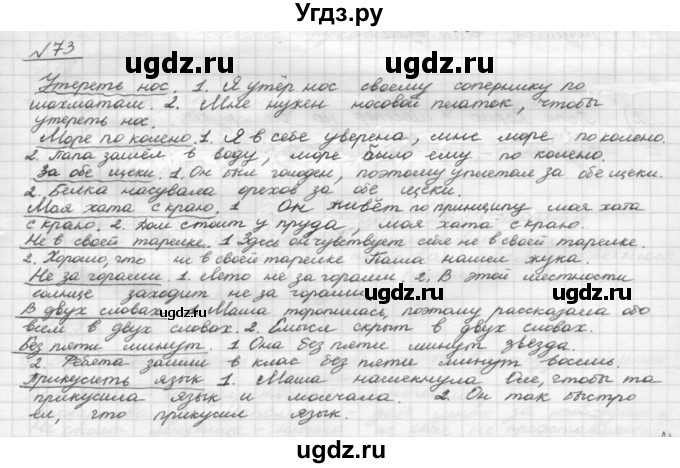 Угдз.ру
№73
Утереть нос. 1. Я утёр нос своему сопернику по
шахматам. 2. Мне нужен носовой платок, чтобы
утереть нос.
Море по колено. 1. Я в себе уверена, мне море по колено.
2. Папа зашёл в воду, море было ему по колено.
За обе щеки. 1. Он был голоден, поэтому уплетал за обе щеки.
2. Белка насувала орехов за обе щеки.
Моя хата с краю. 1 Он живёт по принципу моя хата
с краю. 2. Дом стоит у пруда, моя хата с краю.
Не в своей тарелке. 1 Здесь он чувствует себя не в своей тарелке.
2. Хорошо, что не в своей тарелке Паша нашел жука.
Не за горами. 1. Лето не за горами. 2. В этой местности
солнце заходит не за горами.
В двух словах. Маша торопилась, поэтому рассказала обо
всем в двух словах. 2. Смысл скрыт в двух словах.
Без пяти минут. 1 Она без пяти минут звезда.
2. Ребята зашли в клас без пяти минут восемь.
Прикусить язык 1. Маша намекнула Оле, чтобы та
прикусила язык и молчала. 2. Он так быстро
ел, что прикусил язык.
ugdz.ru ugdz.ru
ugdz.ru ugdz.ru
ugdz.ru ugdz.ru
ugdz.ru ugdz.ru
ugdz.ru ugdz.ru